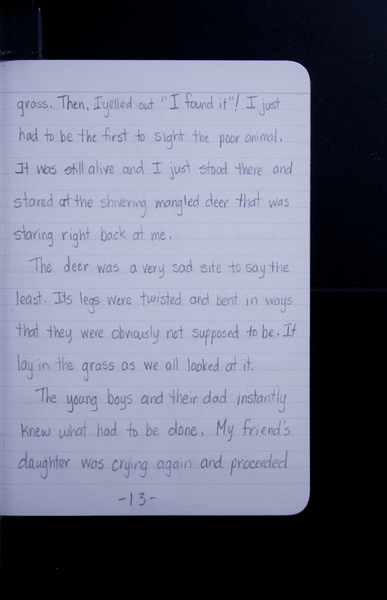 grass. Then, I yelled out "I found it"! I just
had to be the first to sight the poor animal.
It was still alive and I just stood there and
stared at the shivering mangled deer that was
staring right back at me.
The deer was a very sad site to say the
least. Its legs were twisted and bent in ways
that they were obviously not supposed to be. It
lay in the grass as we all looked at it.
The young boys and their dad instantly
knew what had to be done. My friend's
daughter was crying again and proceeded
-13-